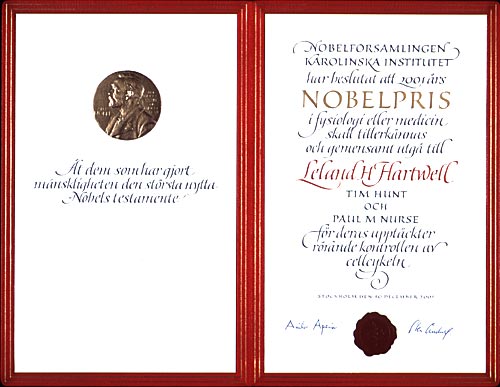 Åt dem som har gjort
mänskligheten den största nytta
Nobels testamente
NOBELFÖRSAMLINGEN
KAROLINSKA INSTITUTET
har beslutat att 2001 års
NOBELPRIS
i fysiologi eller medicin
skall tillerkännas
och gemensamt utgå till
Leland H Hartwell
TIM HUNT
OCH
PAUL M NURSE
för deras upptäckter
rörande kontrollen av
cellcykeln
STOCKHOLM DEN 10 DECEMBER 2001